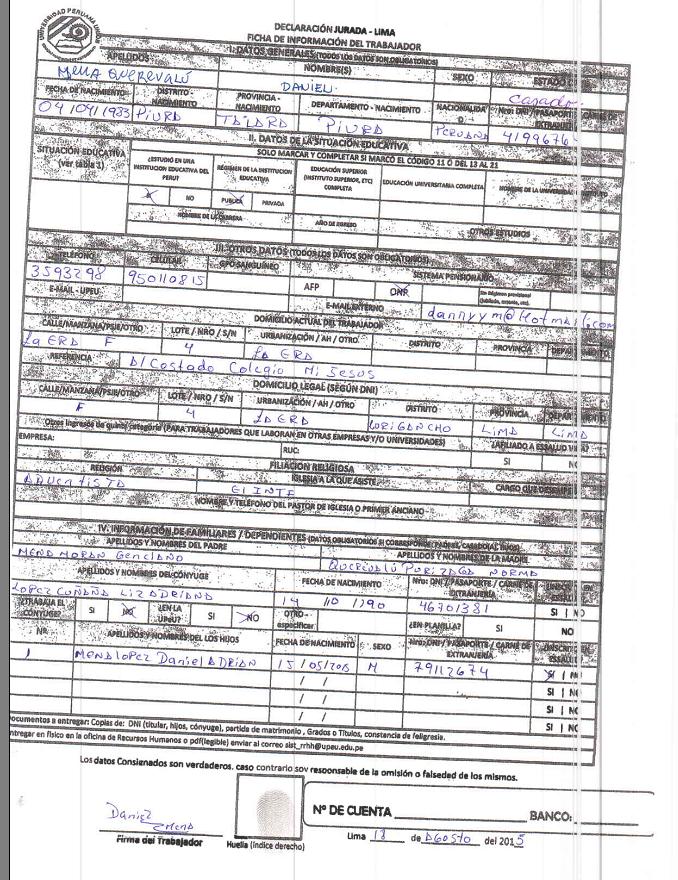 UNIVERSIDAD PERUANA UNIÓN
DECLARACIÓN JURADA - LIMA
FICHA DE INFORMACIÓN DEL TRABAJADOR
I. DATOS GENERALES (TODOS LOS DATOS SON OBLIGATORIOS)
APELLIDOS NOMBRE(S) SEXO ESTADO
MENA QUEREVALÚ DANIEL Casado
FECHA DE NACIMIENTO DISTRITO - NACIMIENTO PROVINCIA - NACIMIENTO DEPARTAMENTO - NACIMIENTO NACIONALIDAD Nro: DNI / PASAPORTE / CARNE DE EXTRANJE
04/04/1983 PIURA TALARA PIURA PERUANA 4199676
II. DATOS DE LA SITUACIÓN EDUCATIVA
SOLO MARCAR Y COMPLETAR SI MARCÓ EL CÓDIGO 11 Ó DEL 13 AL 21
SITUACIÓN EDUCATIVA (ver tabla 1) ¿ESTUDIÓ EN UNA INSTITUCION EDUCATIVA DEL PERU? RÉGIMEN DE LA INSTITUCION EDUCATIVA EDUCACIÓN SUPERIOR (INSTITUTO SUPERIOR, ETC) COMPLETA EDUCACIÓN UNIVERSITARIA COMPLETA NOMBRE DE LA UNIVERSIDAD
NO PUBLICA PRIVADA
NOMBRE DE LA CARRERA AÑO DE EGRESO OTROS ESTUDIOS
III. OTROS DATOS (TODOS LOS DATOS SON OBLIGATORIOS)
TELÉFONO CELULAR GPO SANGUÍNEO SISTEMA PENSIONARIO
3593298 950110815 AFP ONP
E-MAIL - UPEU E-MAIL EXTERNO dannyym@Hotmail.com
DOMICILIO ACTUAL DEL TRABAJADOR
CALLE/MANZANA/PSJE/OTRO LOTE / NRO / S/N URBANIZACIÓN / AH / OTRO DISTRITO PROVINCIA DEPARTAMENTO
La ERA F 4 La ERA
REFERENCIA Al Costado Colegio Mi Jesus
DOMICILIO LEGAL (SEGÚN DNI)
CALLE/MANZANA/PSJE/OTRO LOTE / NRO / S/N URBANIZACIÓN / AH / OTRO DISTRITO PROVINCIA DEPAR MENTO
F 4 LA ERA LURIGANCHO LIMA LIMA
Otros Ingresos de quinta categoría (PARA TRABAJADORES QUE LABORAN EN OTRAS EMPRESAS Y/O UNIVERSIDADES) ¿AFILIADO A ESSALUD
EMPRESA: RUC: SI NO
FILIACIÓN RELIGIOSA
RELIGIÓN IGLESIA A LA QUE ASISTE CARGO QUE DESEMPE
ADVENTISTA
NOMBRE Y TELÉFONO DEL PASTOR DE IGLESIA O PRIMER ANCIANO
IV. INFORMACIÓN DE FAMILIARES / DEPENDIENTES
APELLIDOS Y NOMBRES DEL PADRE APELLIDOS Y NOMBRES DE LA MADRE
MENA MORAN Genciano QUEREVALÚ PURIZAGA NORMA
APELLIDOS Y NOMBRES DEL CÓNYUGE FECHA DE NACIMIENTO Nro: DNI / PASAPORTE / CARNE DE EXTRANJERIA
LOPEZ CUNAÑA LIZ ADRIANA 14 /10 /1990 46701381 SI | NO
¿TRABAJA EL CÓNYUGE? SI NO ¿EN LA UPeU? SI NO OTRO - especificar ¿EN PLANILLA? SI NO
NR. APELLIDOS Y NOMBRES DE LOS HIJOS FECHA DE NACIMIENTO SEXO Nro: DNI / PASAPORTE / CARNE DE EXTRANJERIA
1 MENA LOPEZ Daniel ADRIAN 15/05/2015 M 79112674 SI | NO
/ / SI | NO
/ / SI | NO
/ / SI | NO
ocumentos a entregar: Copias de: DNI (titular, hijos, cónyuge), partida de matrimonio, Grados o Títulos, constancia de feligresía.
ntregar en físico en la oficina de Recursos Humanos o pdf(legible) enviar al correo sist_rrhh@upeu.edu.pe
Los datos Consignados son verdaderos, caso contrario soy responsable de la omisión o falsedad de los mismos.
Daniel Mena
Nº DE CUENTA BANCO:
Firma del Trabajador Huella (índice derecho) Lima 18 de AGOSTO del 2015